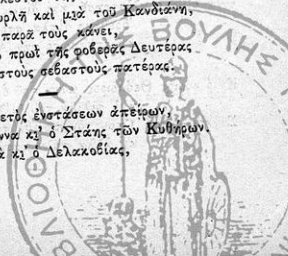 ουρλῆ καὶ μιὰ τοῦ Κανδιάνη,
παρᾶ τοὺς κάνει,
πρωῒ τῆς φοβερᾶς Δευτέρας
στοὺς σεβαστοὺς πατέρας.
ετὸς ἐνστάσεων ἀπείρων,
να κι' ὁ Στάης τῶν Κυθήρων.
κι' ὁ Δελακοβίας,
ΒΙΒΛΙΟΘΗΚΗ ΤΗΣ ΒΟΥΛΗΣ